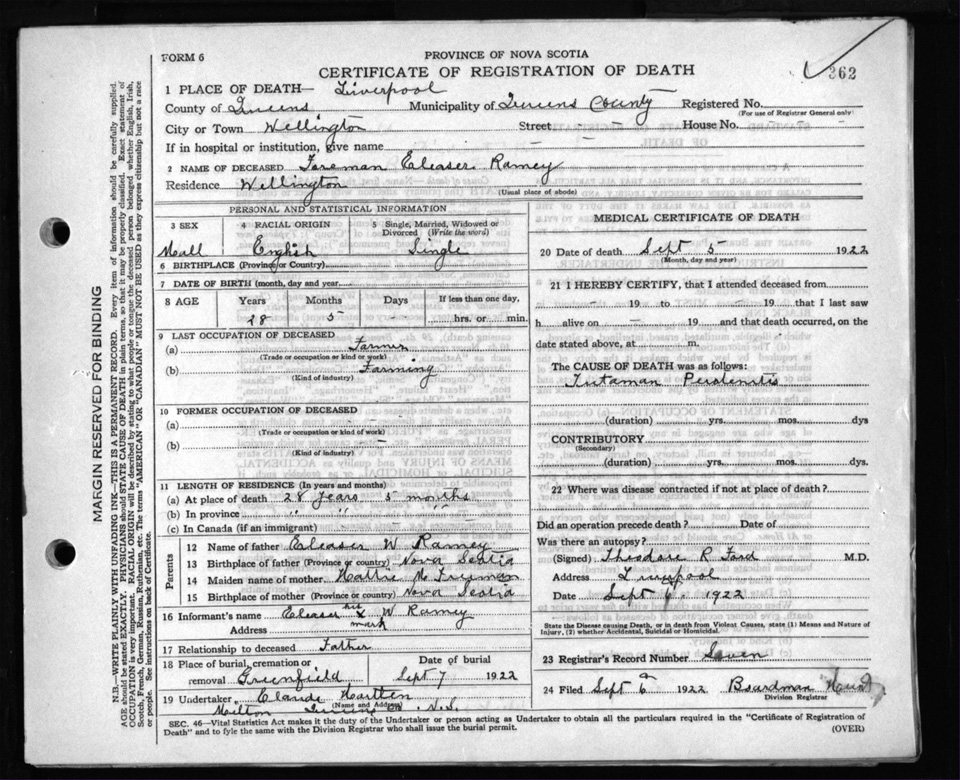 FORM 6
PROVINCE OF NOVA SCOTIA
CERTIFICATE OF REGISTRATION OF DEATH
362
1 PLACE OF DEATH— Liverpool
County of Queens Municipality of Queens County Registered No.
(For use of Registrar General only)
City or Town Wellington Street — — House No. — — —
If in hospital or institution, give name — —
2 NAME OF DECEASED Foreman Eleaser Ramey
Residence Wellington
(Usual place of abode)
PERSONAL AND STATISTICAL INFORMATION
3 SEX 4 RACIAL ORIGIN 5 Single, Married, Widowed or Divorced (Write the word)
Mall English Single
6 BIRTHPLACE (Province or Country)
7 DATE OF BIRTH (month, day and year)
8 AGE Years Months Days If less than one day,
28 5 hrs. or min.
9 LAST OCCUPATION OF DECEASED
(a) Farmer
(Trade or occupation or kind of work)
(b) Farming
(Kind of industry)
10 FORMER OCCUPATION OF DECEASED
(a)
(Trade or occupation or kind of work)
(b) —
(Kind of industry)
11 LENGTH OF RESIDENCE (In years and months)
(a) At place of death 28 years 5 months
(b) In province " " " —
(c) In Canada (if an immigrant) — —
Parents
12 Name of father Eleaser W Ramey
13 Birthplace of father (Province or country) Nova Scotia
14 Maiden name of mother Hattie M Freeman
15 Birthplace of mother (Province or country) Nova Scotia
16 Informant's name Eleaser his x mark W Ramey
Address
17 Relationship to deceased Father
18 Place of burial, cremation or removal Greenfield
Date of burial Sept 7 1922
19 Undertaker Claude Hartlen
(Name and Address)
Milton Queens Co N.S.
MEDICAL CERTIFICATE OF DEATH
20 Date of death Sept 5 1922
(Month, day and year)
21 I HEREBY CERTIFY, that I attended deceased from
— 19 to — — 19 that I last saw
h alive on — 19 and that death occurred, on the
date stated above, at m.
The CAUSE OF DEATH was as follows:
(duration) yrs. mos. dys
CONTRIBUTORY
(Secondary)
(duration) yrs. mos. dys
22 Where was disease contracted if not at place of death?
Did an operation precede death? Date of
Was there an autopsy?
(Signed) Theodore R Ford M.D.
Address Liverpool
Date Sept 6 1922
State the Disease causing Death, or in death from Violent Causes, state (1) Means and Nature of Injury, (2) whether Accidental, Suicidal or Homicidal.
23 Registrar's Record Number Seven
24 Filed Sept 6 1922 Boardman
Division Registrar
SEC. 46—Vital Statistics Act makes it the duty of the Undertaker or person acting as Undertaker to obtain all the particulars required in the "Certificate of Registration of
Death" and to fyle the same with the Division Registrar who shall issue the burial permit. (OVER)
MARGIN RESERVED FOR BINDING
N.B.—WRITE PLAINLY WITH UNFADING INK—THIS IS A PERMANENT RECORD. Every item of information should be carefully supplied.
AGE should be stated EXACTLY. PHYSICIANS should STATE CAUSE OF DEATH in plain terms, so that it may be properly classified. Exact statement of
OCCUPATION is very important. RACIAL ORIGIN will be described by stating to what people or tongue the deceased person belonged whether English, Irish,
Scotch, French, German, Russian, Ruthenian, etc. The terms "AMERICAN" OR "CANADIAN" MUST NOT BE USED as they express citizenship but not a race
or people. See instructions on back of Certificate.